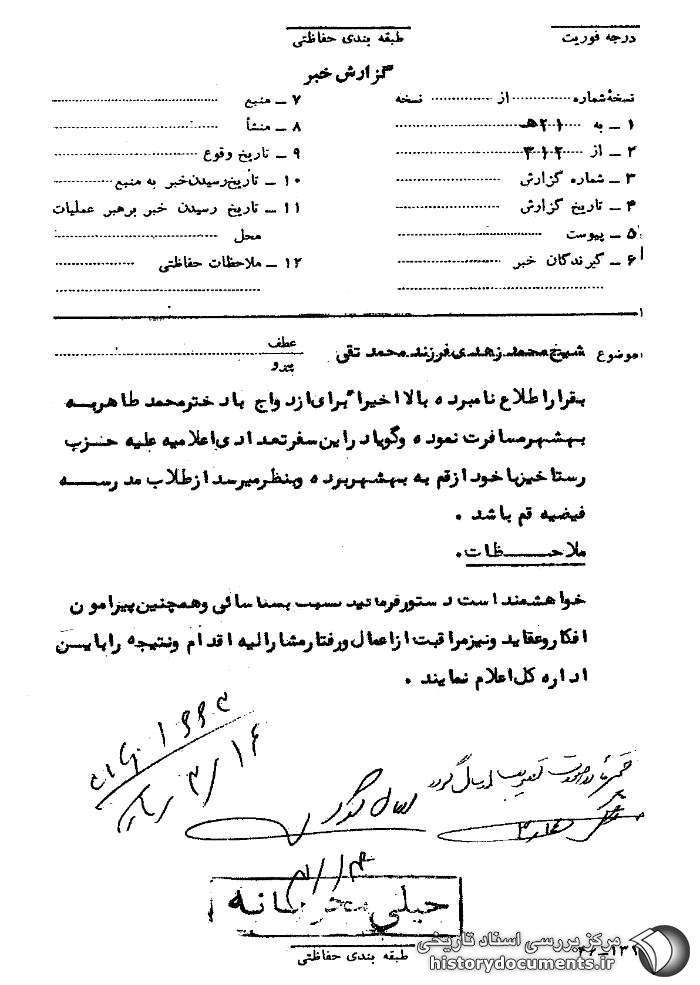 درجه فوریت
طبقه بندی حفاظتی
گزارش خبر
نسخهٔ شماره ........ از ........ نسخه
۱ ـ به ۲۱هـ
۲ ـ از ۳۱۲
۳ ـ شماره گزارش
۴ ـ تاریخ گزارش
۵ ـ پیوست
۶ ـ گیرندگان خبر
۷ ـ منبع
۸ ـ منشأ
۹ ـ تاریخ وقوع
۱۰ ـ تاریخ رسیدن خبر به منبع
۱۱ ـ تاریخ رسیدن خبر برهبر عملیات
محل
۱۲ ـ ملاحظات حفاظتی
موضوع شیخ محمد زهدی فرزند محمد تقی
عطف
پیرو
بقرار اطلاع نامبرده بالا اخیرا" برای ازدواج با دختر محمد طاهر به
بهشهر مسافرت نموده و گویا در این سفر تعدادی اعلامیه علیه حزب
رستاخیز با خود از قم به بهشهر برده و بنظر میرسد از طلاب مدرسه
فیضیه قم باشد .
ملاحــــظات .
خواهشمند است دستور فرمائید نسبت بشناسائی و همچنین پیرامون
افکار و عقاید و نیز مراقبت از اعمال و رفتار مشارالیه اقدام و نتیجه را باین
اداره کل اعلام نمایند .
ارسال گردد
۳/۱۴
خیلی محرمانه
طبقه بندی حفاظتی
مرکز بررسی اسناد تاریخی
historydocuments.ir